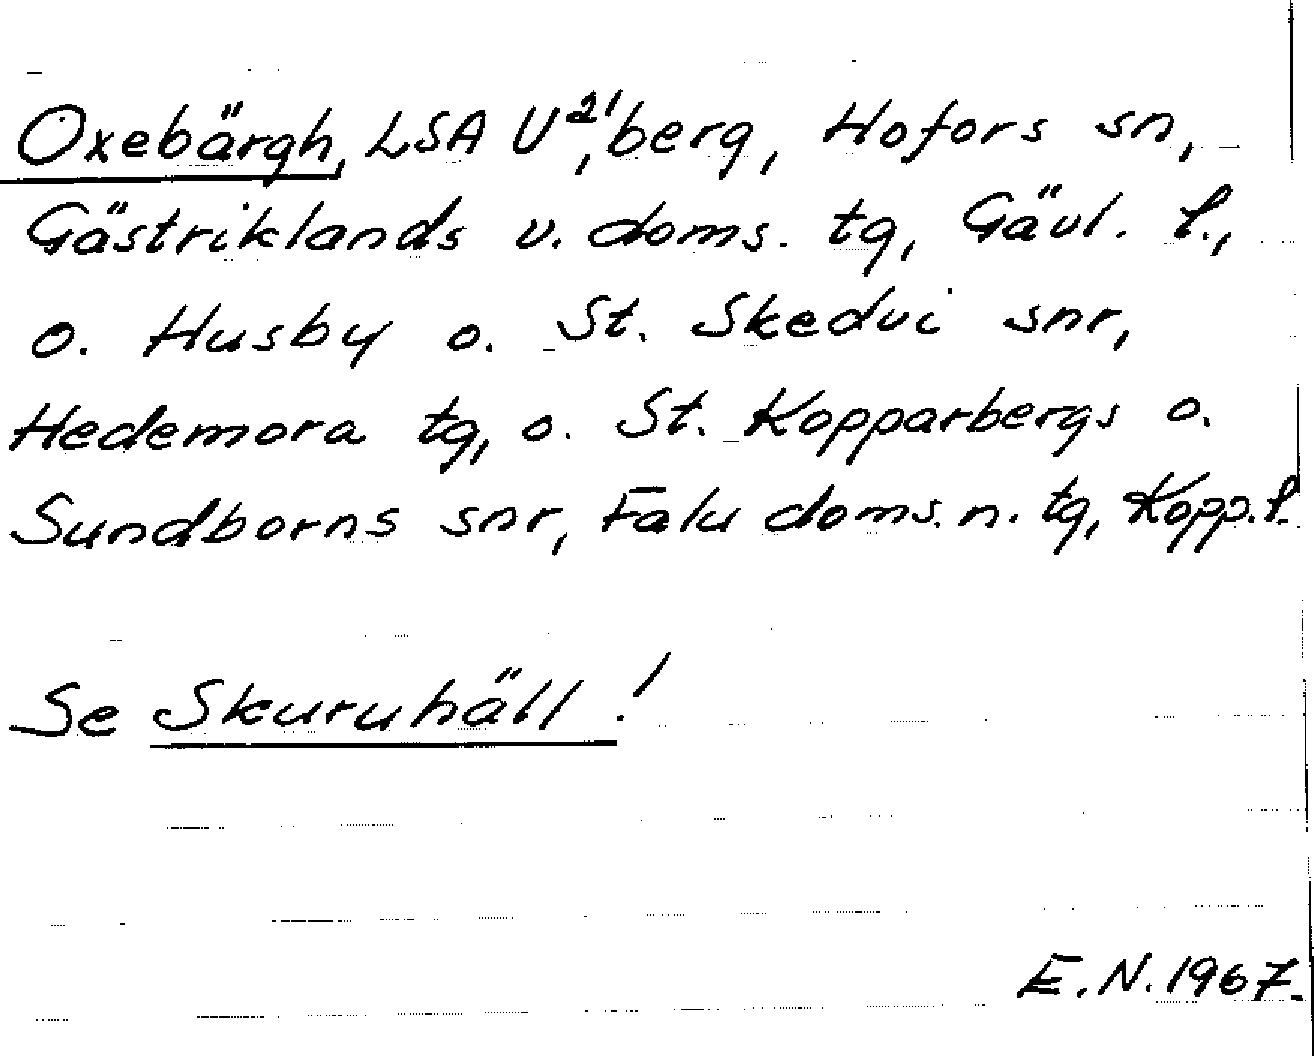 Oxebärgh, LSA U²¹, berg, Hofors sn,
Gästriklands v. doms. tg, Gävl. l.,
o. Husby o. St. Skedvi snr,
Hedemora tg, o. St. Kopparbergs o.
Sundborns snr, Falu doms. n. tg, Kopp. l.
Se Skuruhäll!
E.N. 1967.